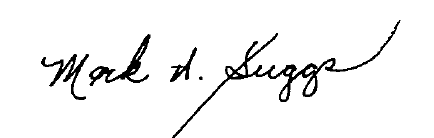 Mark A. Suggs